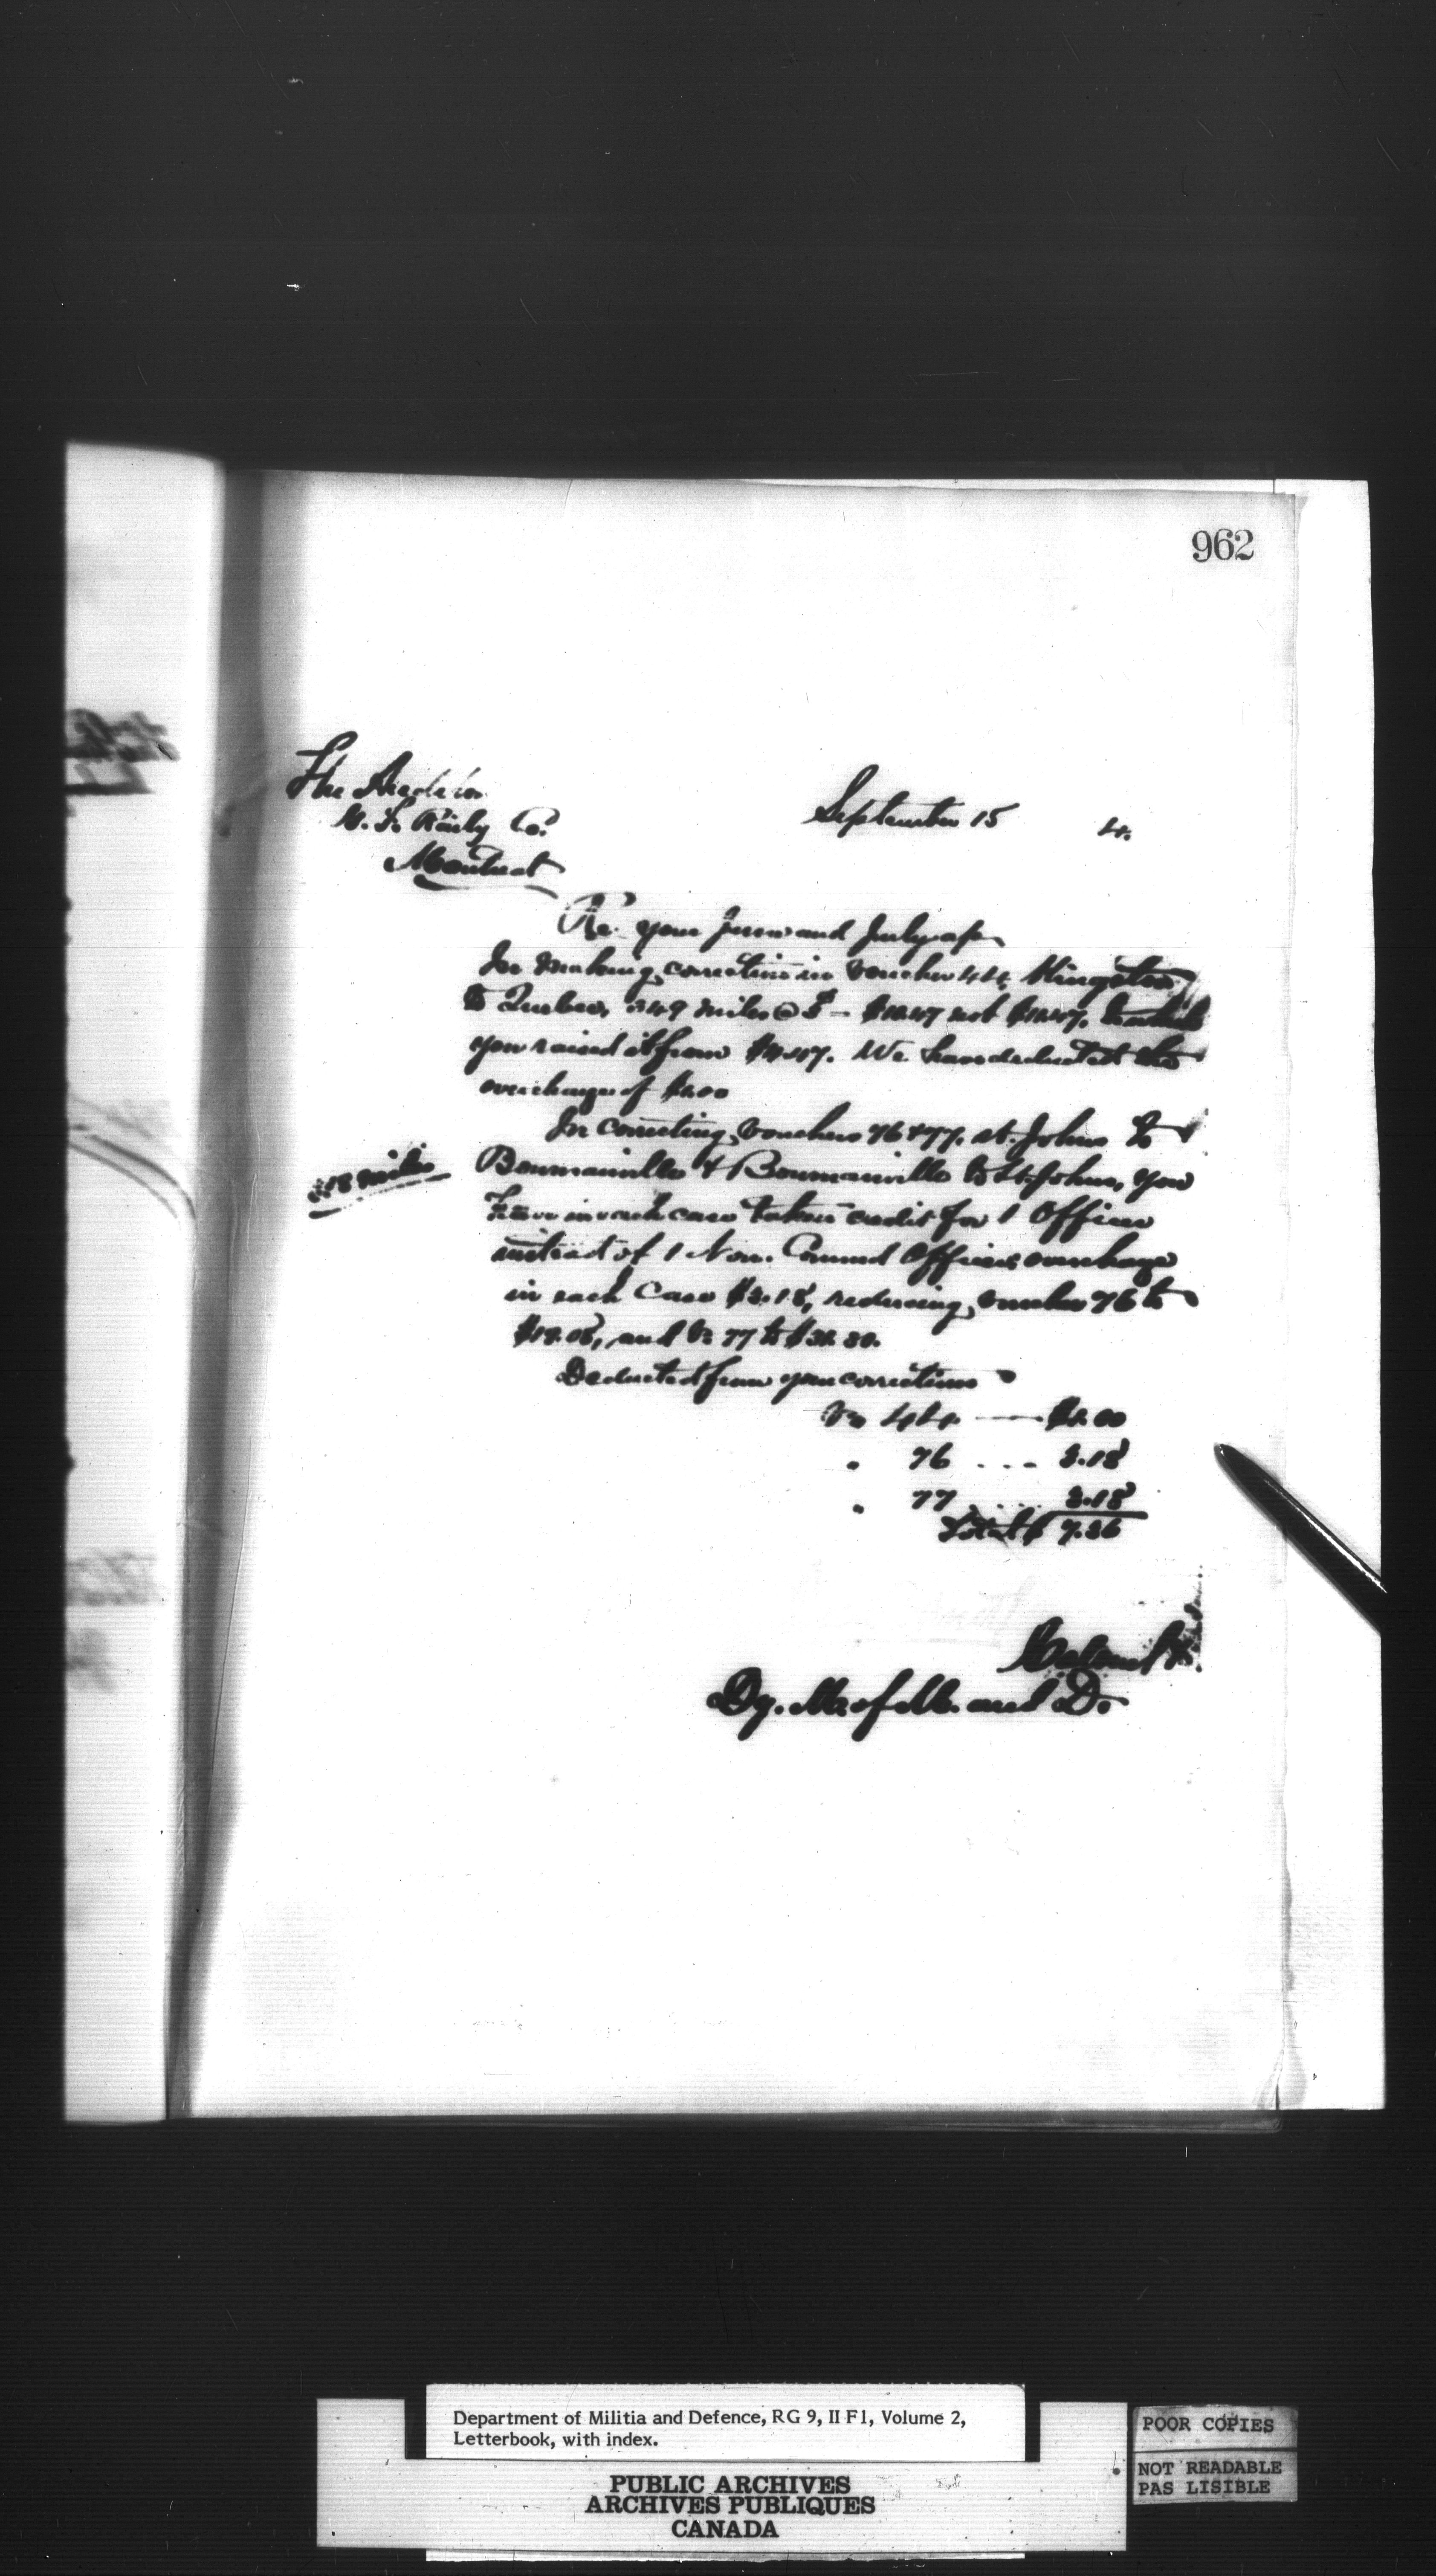 962
The Auditor
G. T. Raily Co.
Montreal
September 15 4.
Re. your June and July a/cs
In making correction in voucher 444 Kingston
to Quebec, 349 miles @ 3¢ — $10.47 not $11.47.
you raised it from We have deducted the
overcharge of $1.00
In correcting vouchers 76 & 77. St. Johns to
318 miles
Bowmanville & Bowmanville to St. Johns, you
have in each case taken credit for 1 Officer
instead of 1 Non. Commd Officer overchage
in each case $3.18, reducing voucher 76 to
$19.08, and Vr 77 to
Deducted from your corrections
Vo 444 — $1.00
" 76 ... 3.18
" 77 ... 3.18
Total $ 7.36
Colonel
Dy. Mr of M. and D.
Department of Militia and Defence, RG 9, II F1, Volume 2,
Letterbook, with index.
PUBLIC ARCHIVES
ARCHIVES PUBLIQUES
CANADA
POOR COPIES
NOT READABLE
PAS LISIBLE